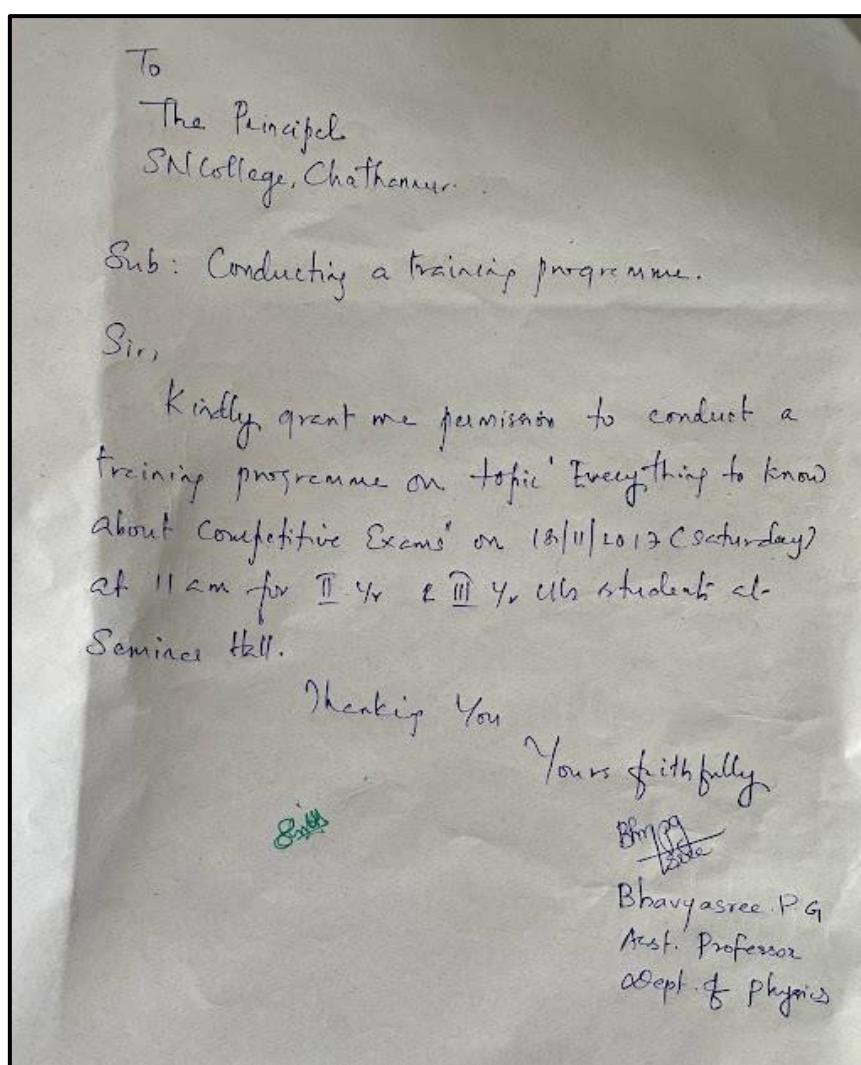 To
The Principal
SN College, Chathannur.
Sub: Conducting a training programme.
Sir,
Kindly grant me permission to conduct a
training programme on topic 'Everything to know
about Competitive Exams' on 18/11/2017 (Saturday)
at 11 am for II Yr & III Yr UG students at
Seminar Hall.
Thanking You
Yours faithfully
Bhavyasree. P G
Asst. Professor
Dept. of Physics